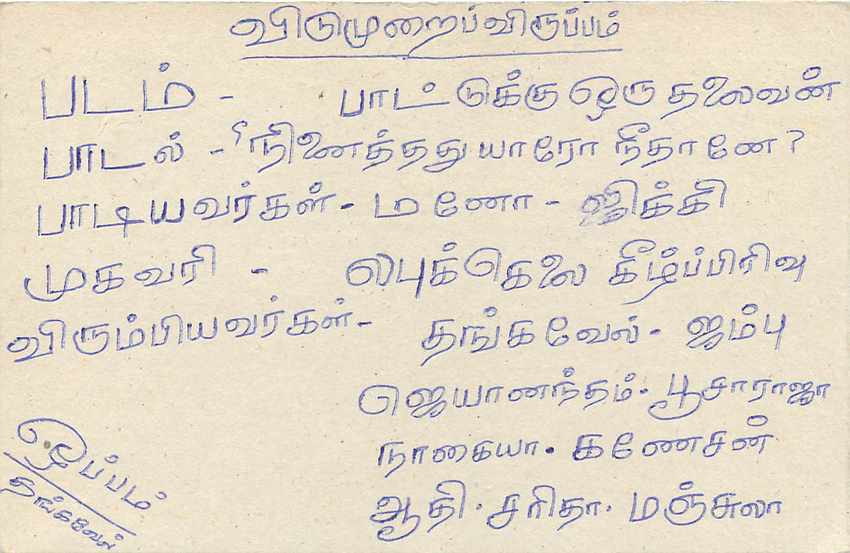 விடுமுறைப்விருப்பம்
படம் - பாட்டுக்கு ஒரு தலைவன்
பாடல் - நினைத்தது யாரோ நீதானே?
பாடியவர்கள் - மனோ - ஜிக்கி
முகவரி - லபுக்கெலை கீழ்ப்பிரிவு
விரும்பியவர்கள் - தங்கவேல் - ஜம்பு
ஜெயானந்தம். பூசாராஜா
நாகையா. கணேசன்
ஆதி. சரிதா. மஞ்சுலா
ஒப்பம்
தங்கவேல்